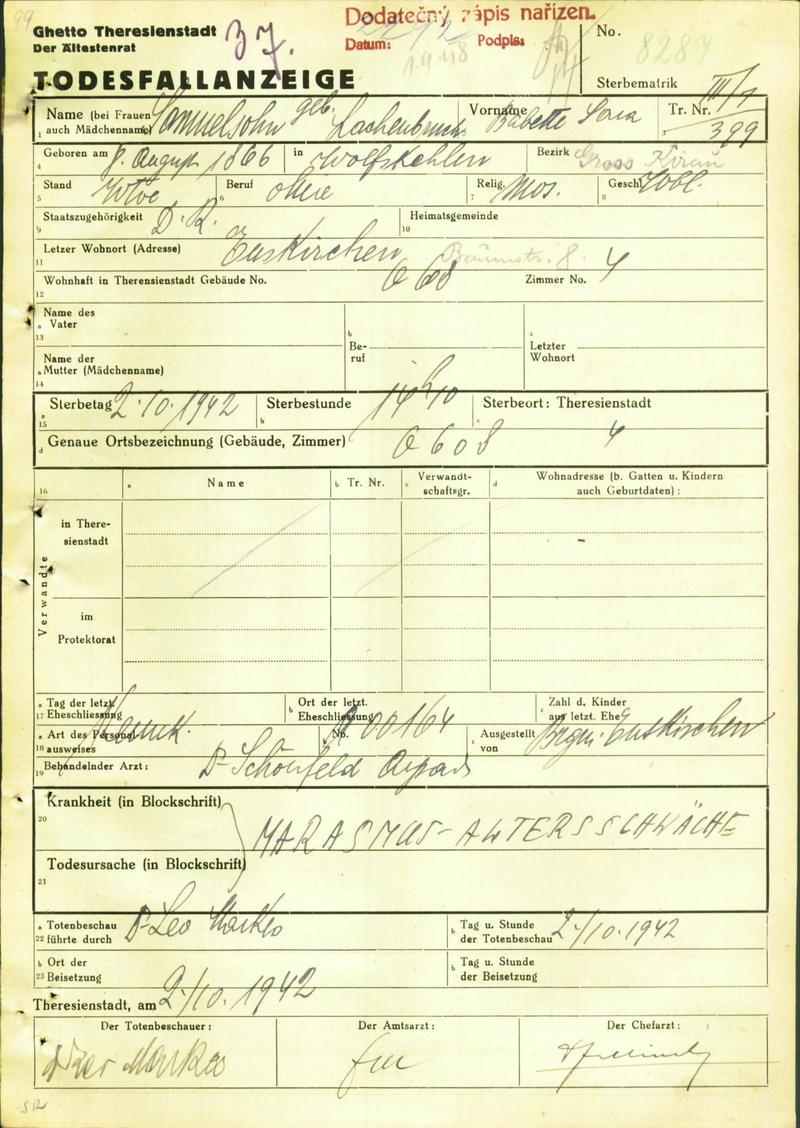 Dodatečný zápis nařízen.
Datum: Podpis:
37.
Ghetto Theresienstadt
Der Ältestenrat
TODESFALLANZEIGE
No. 8287
Sterbematrik
1 Name (bei Frauen auch Mädchenname) Samuelsohn geb. Vorname Babette Sara Tr. Nr. III/1 399
4 Geboren am 8. August 1866 in Wolfskehlen Bezirk Gross
5 Stand Wwe 6 Beruf ohne 7 Relig. Mos. 8 Geschl. Wbl.
9 Staatszugehörigkeit D. R. 10 Heimatsgemeinde
11 Letzer Wohnort (Adresse) Euskirchen Baumstr. 8.
12 Wohnhaft in Theresienstadt Gebäude No. Zimmer No. 4
13 a Name des Vater b Beruf c Letzter Wohnort
14 a Name der Mutter (Mädchenname)
15 a Sterbetag 2.10.1942 b Sterbestunde 14h10 c Sterbeort: Theresienstadt
d Genaue Ortsbezeichnung (Gebäude, Zimmer) 4
16 a Name b Tr. Nr. c Verwandtschaftsgr. d Wohnadresse (b. Gatten u. Kindern auch Geburtdaten) :
Verwandte
in Theresienstadt
im Protektorat
17 a Tag der letzt. Eheschliessung b Ort der letzt. Eheschliessung c Zahl d. Kinder aus letzt. Ehe
18 a Art des Personalausweises Kennk. b No. A 00164 c Ausgestellt von Brgm. Euskirchen
19 Behandelnder Arzt: Dr Schönfeld
20 Krankheit (in Blockschrift)
MARASMUS - ALTERSSCHWÄCHE
21 Todesursache (in Blockschrift)
22 a Totenbeschau führte durch Dr Leo b Tag u. Stunde der Totenbeschau 2./10.1942
23 b Ort der Beisetzung b Tag u. Stunde der Beisetzung
Theresienstadt, am 2./10.1942
Der Totenbeschauer: Der Amtsarzt: Der Chefarzt: